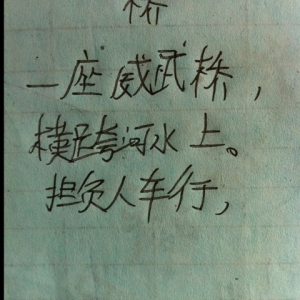 桥
一座威武桥，
横跨河水上。
担负人车行，